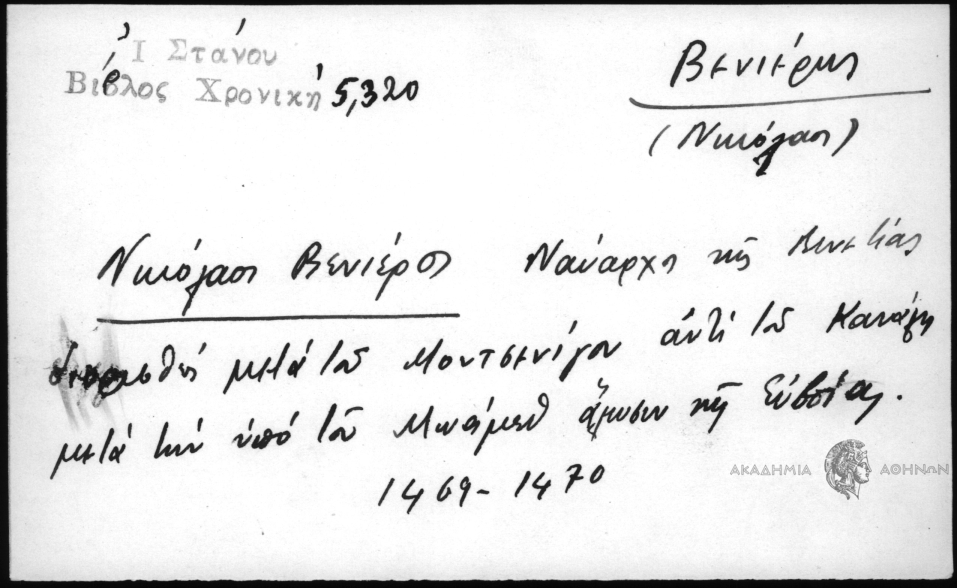 Ἰ Στάνου
Βίβλος Χρονική 5,320
Βενιέρης
(Νικόλαος)
Νικόλαος Βενιέρος Ναύαρχος τῆς Βενετίας
μετά τοῦ Μοντσενίγου ἀντί τοῦ Κανάλη
μετά τήν ὑπό τοῦ Μωάμεθ ἅλωσιν τῆς Εὐβοίας.
1469-1470
ΑΚΑΔΗΜΙΑ ΑΘΗΝΩΝ